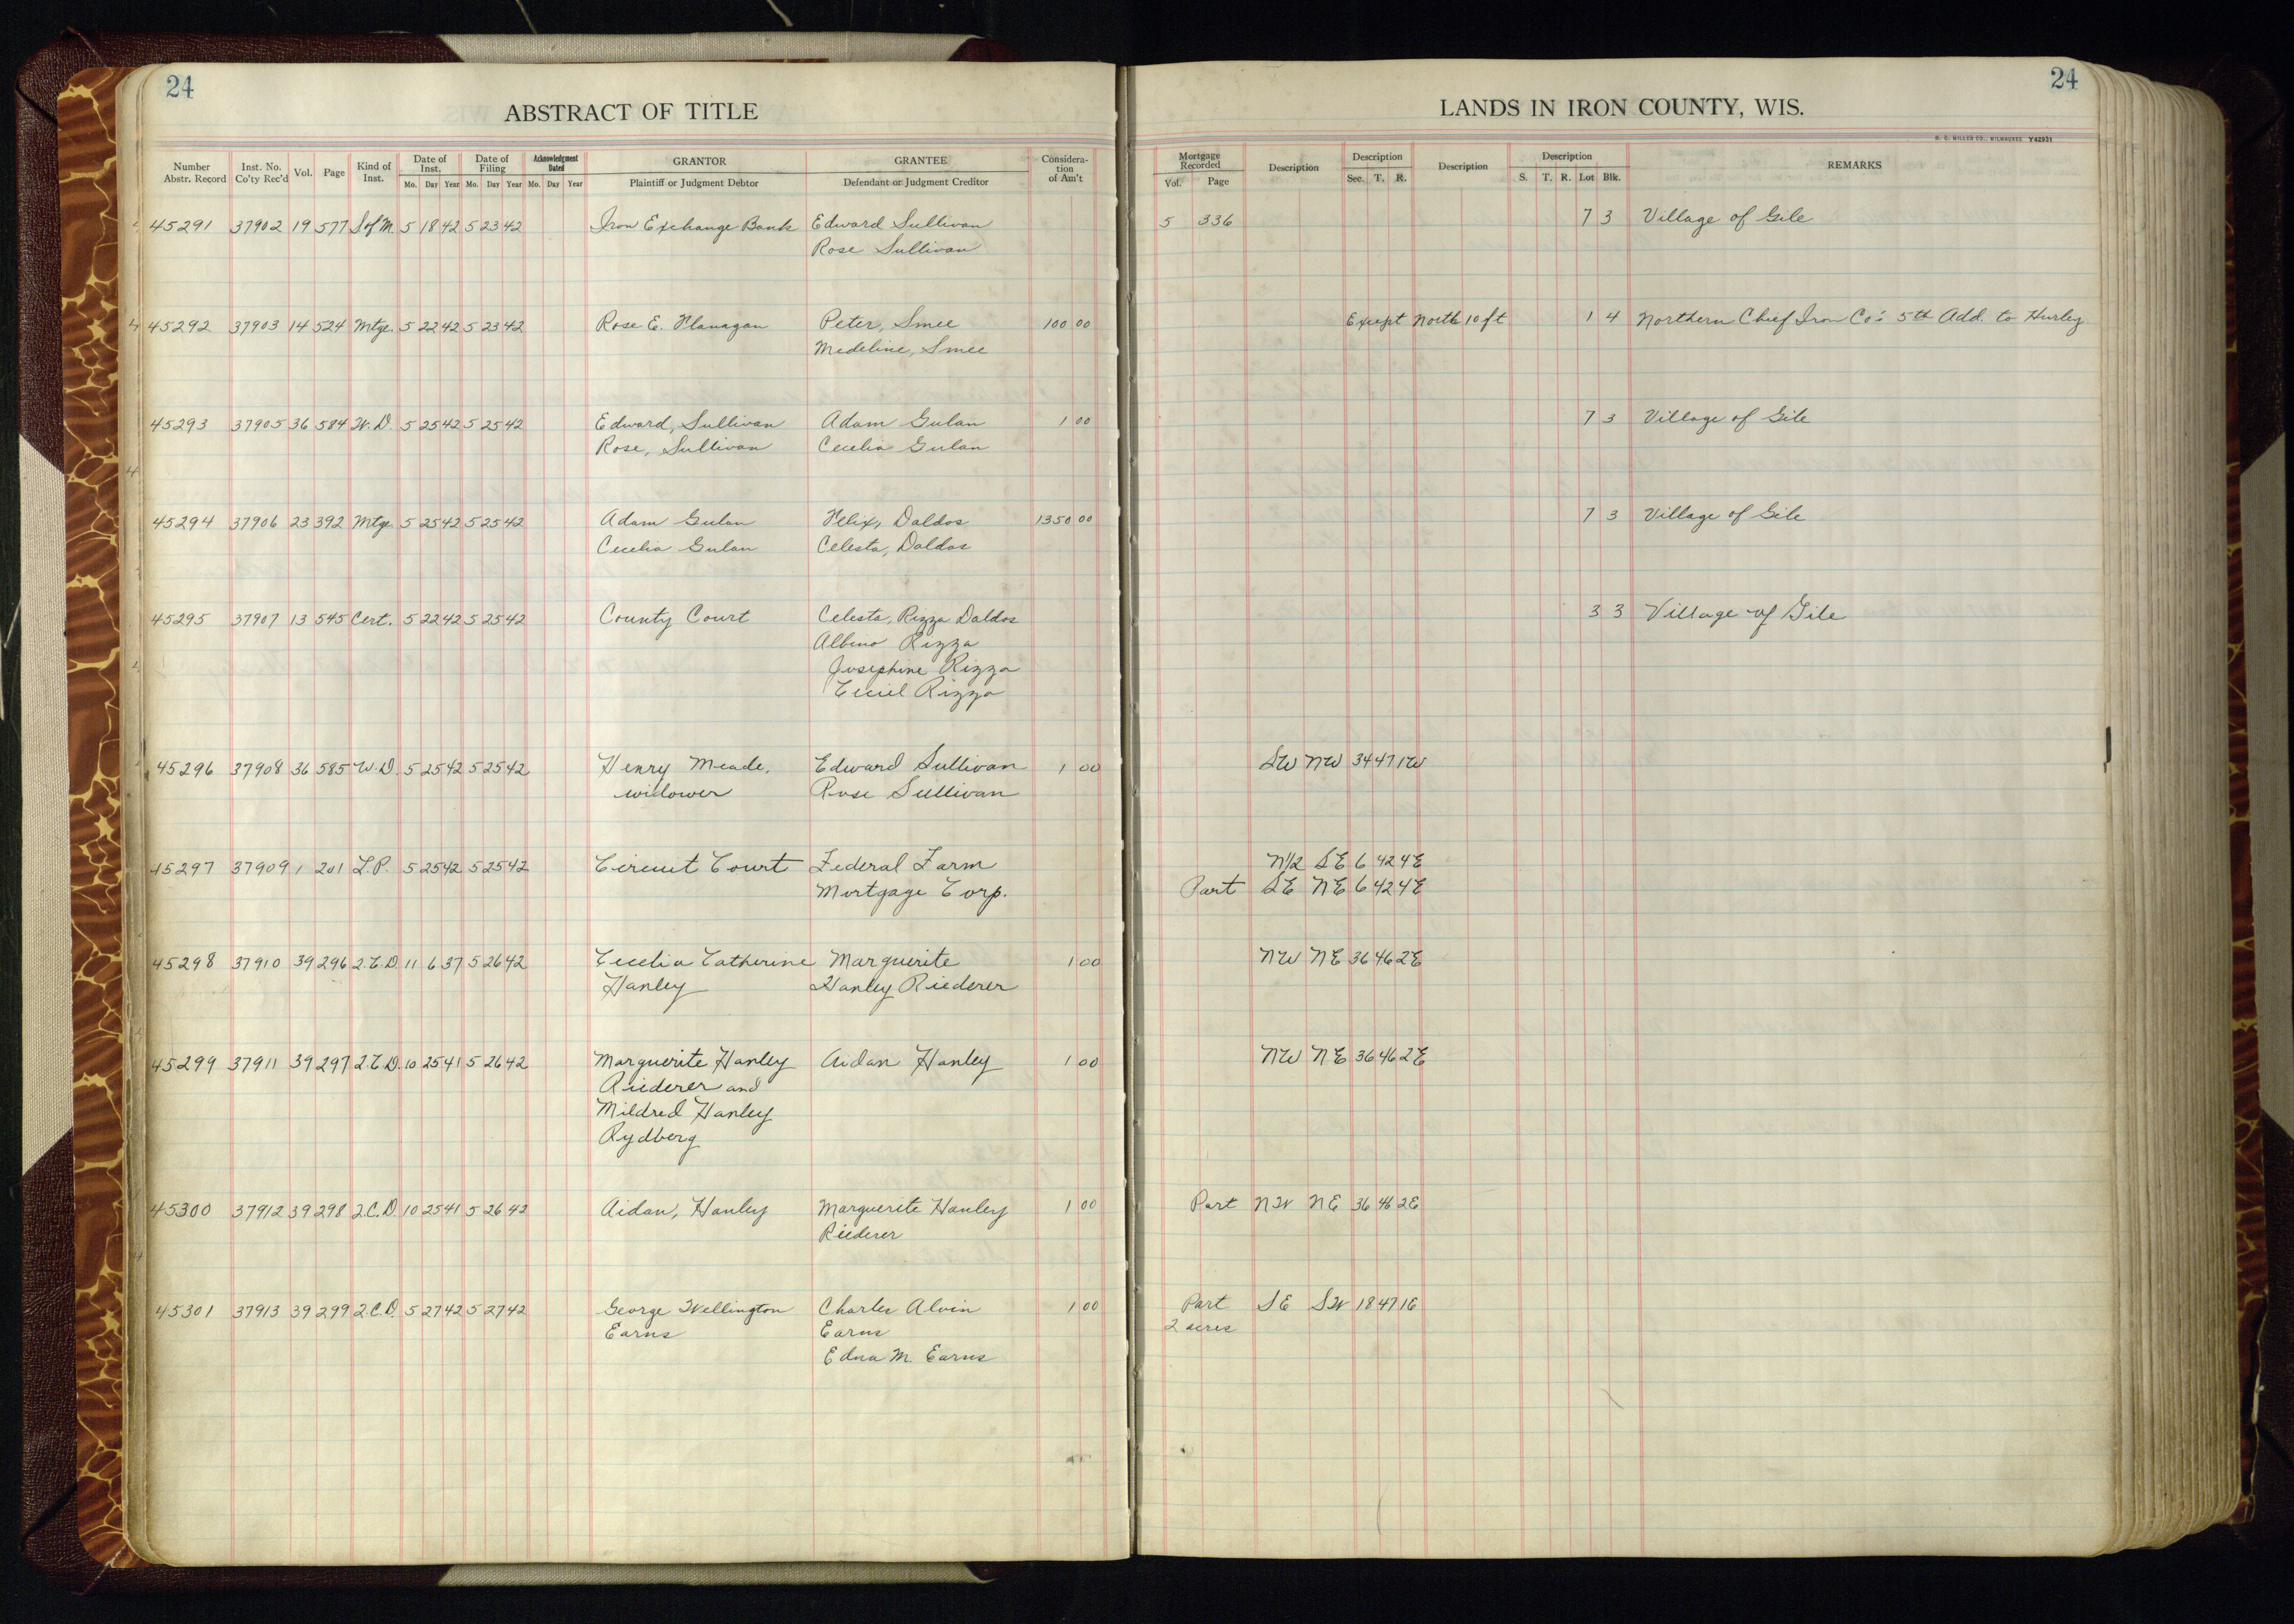 24
ABSTRACT OF TITLE
Number Abstr. Record Inst. No. Co'ty Rec'd Vol. Page Kind of Inst. Date of Inst. Mo. Day Year Date of Filing Mo. Day Year Acknowledgment Dated Mo. Day Year GRANTOR Plaintiff or Judgment Debtor GRANTEE Defendant or Judgment Creditor Considera-tion of Am't
45291 37902 19 577 S of M. 5 18 42 5 23 42 Iron Exchange Bank Edward Sullivan
Rose Sullivan
45292 37903 14 524 Mtge. 5 22 42 5 23 42 Rose E. Flanagan Peter, Smee 100 00
Medeline, Smee
45293 37905 36 584 W. D. 5 25 42 5 25 42 Edward, Sullivan Adam Gulan 1 00
Rose, Sullivan Cecelia Gulan
45294 37906 23 392 Mtge. 5 25 42 5 25 42 Adam Gulan Felix, Daldos 1350 00
Cecelia Gulan Celesta, Daldos
45295 37907 13 545 Cert. 5 22 42 5 25 42 County Court Celesta, Rizza Daldos
Albino Rizza
Josephine Rizza
Rizza
45296 37908 36 585 W. D. 5 25 42 5 25 42 Henry Meade, Edward Sullivan 1 00
widower Rose Sullivan
45297 37909 1 201 L. P. 5 25 42 5 25 42 Circuit Court Federal Farm
Mortgage Corp.
45298 37910 39 296 2. C. D. 11 6 37 5 26 42 Cecelia Catherine Marguerite 1 00
Hanley Hanley Riederer
45299 37911 39 297 2. C. D. 10 25 41 5 26 42 Marguerite Hanley Aidan Hanley 1 00
Riederer and
Mildred Hanley
Rydberg
45300 37912 39 298 2. C. D. 10 25 41 5 26 42 Aidan, Hanley Marguerite Hanley 1 00
Riederer
45301 37913 39 299 2. C. D. 5 27 42 5 27 42 George Wellington Charles Alvin 1 00
Earns Earns
Edna M. Earns
24
LANDS IN IRON COUNTY, WIS.
H. C. MILLER CO., MILWAUKEE Y42931
Mortgage Recorded Vol. Page Description Description Sec. T. R. Description Description S. T. R. Lot Blk. REMARKS
5 336 7 3 Village of Gile
Except North 10 ft. 1 4 Northern Chief Iron Co's 5th Add. to Hurley.
7 3 Village of Gile
7 3 Village of Gile
3 3 Village of Gile
SW NW 34 47 1W
N1/2 SE 6 42 4E
Part SE NE 6 42 4E
NW NE 36 46 2E
NW NE 36 46 2E
Part NW NE 36 46 2E
Part SE SW 18 47 1E
2 acres